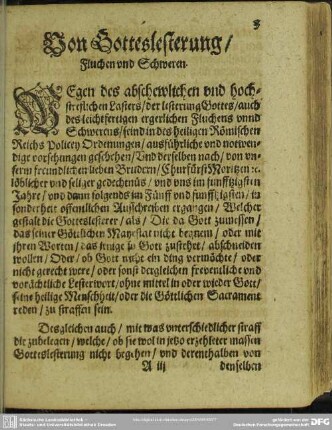 3
Von Gotteslesterung/
Fluchen vnd Schweren.
WEgen des abschewlichen vnd hoch-
streflichen Lasters/der lesterung Gottes/auch
des leichtfertigen ergerlichen Fluchens vnnd
Schwerens/seind in des heiligen Römischen
Reichs Policey Ordenungen/ausführliche vnd notwen-
dige vorsehungen geschehen/Vnd derselben nach/von vn-
serm freundlichen lieben Brudern/Churfürst Moritzen
löblicher vnd seliger gedechtnüs/vnd vns im funfftzigsten
Jahre/vnd dann folgends im Fünff vnd funfftzigsten/in
sonderheit öffentlichen Ausschreiben ergangen/Welcher
gestalt die Gotteslesterer/als/Die da Gott zumessen/
das seiner Göttlichen Mayestat nicht beqnem/oder mit
ihren Worten/das jenige so Gott zustehet/abschneiden
wollen/Oder/ob Gott nicht ein ding vermöchte/oder
nicht gerecht were/oder sonst dergleichen freventliche vnd
vorächtliche Lesterwort/ohne mittel in oder wieder Gott/
seine heilige Menschheit/oder die Göttlichen Sacrament
reden/zu straffen sein.
Desgleichen auch/mit was vnterschiedlicher straff
die zubelegen/welche/ob sie wol in jetzo erzehleter massen
Gotteslesterung nicht begehen/vnd derenthalben von
A iij denselben
DFG